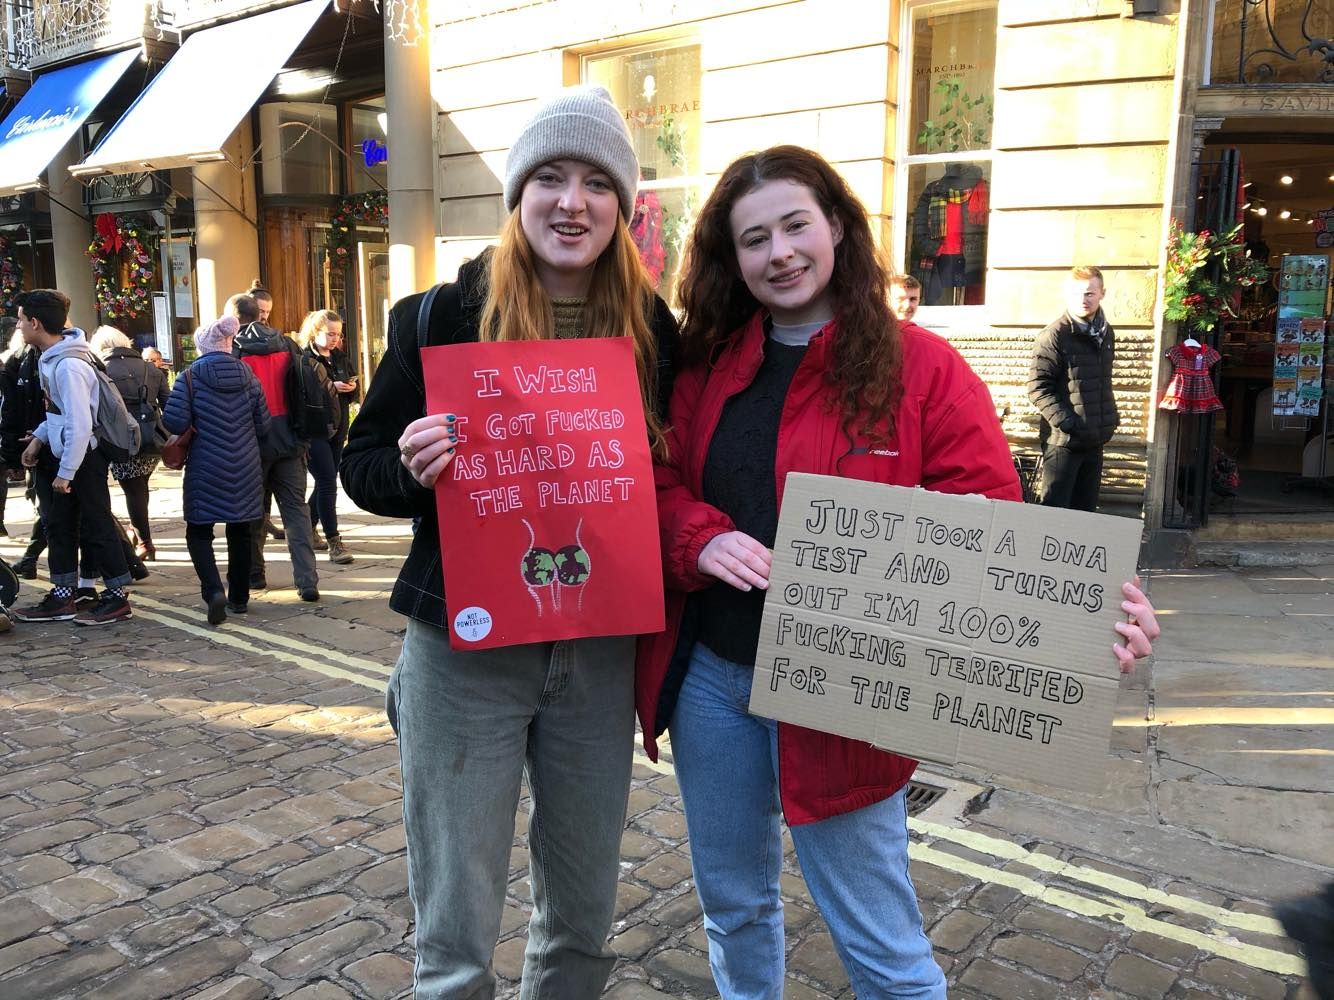 Carluccio's
MARCHBRAE
MARCHBRAE
SAVIL
I WISH
I GOT FUCKED
AS HARD AS
THE PLANET
NOT
POWERLESS
Reebok
JUST TOOK A DNA
TEST AND TURNS
OUT I'M 100%
FUCKING TERRIFED
FOR THE PLANET